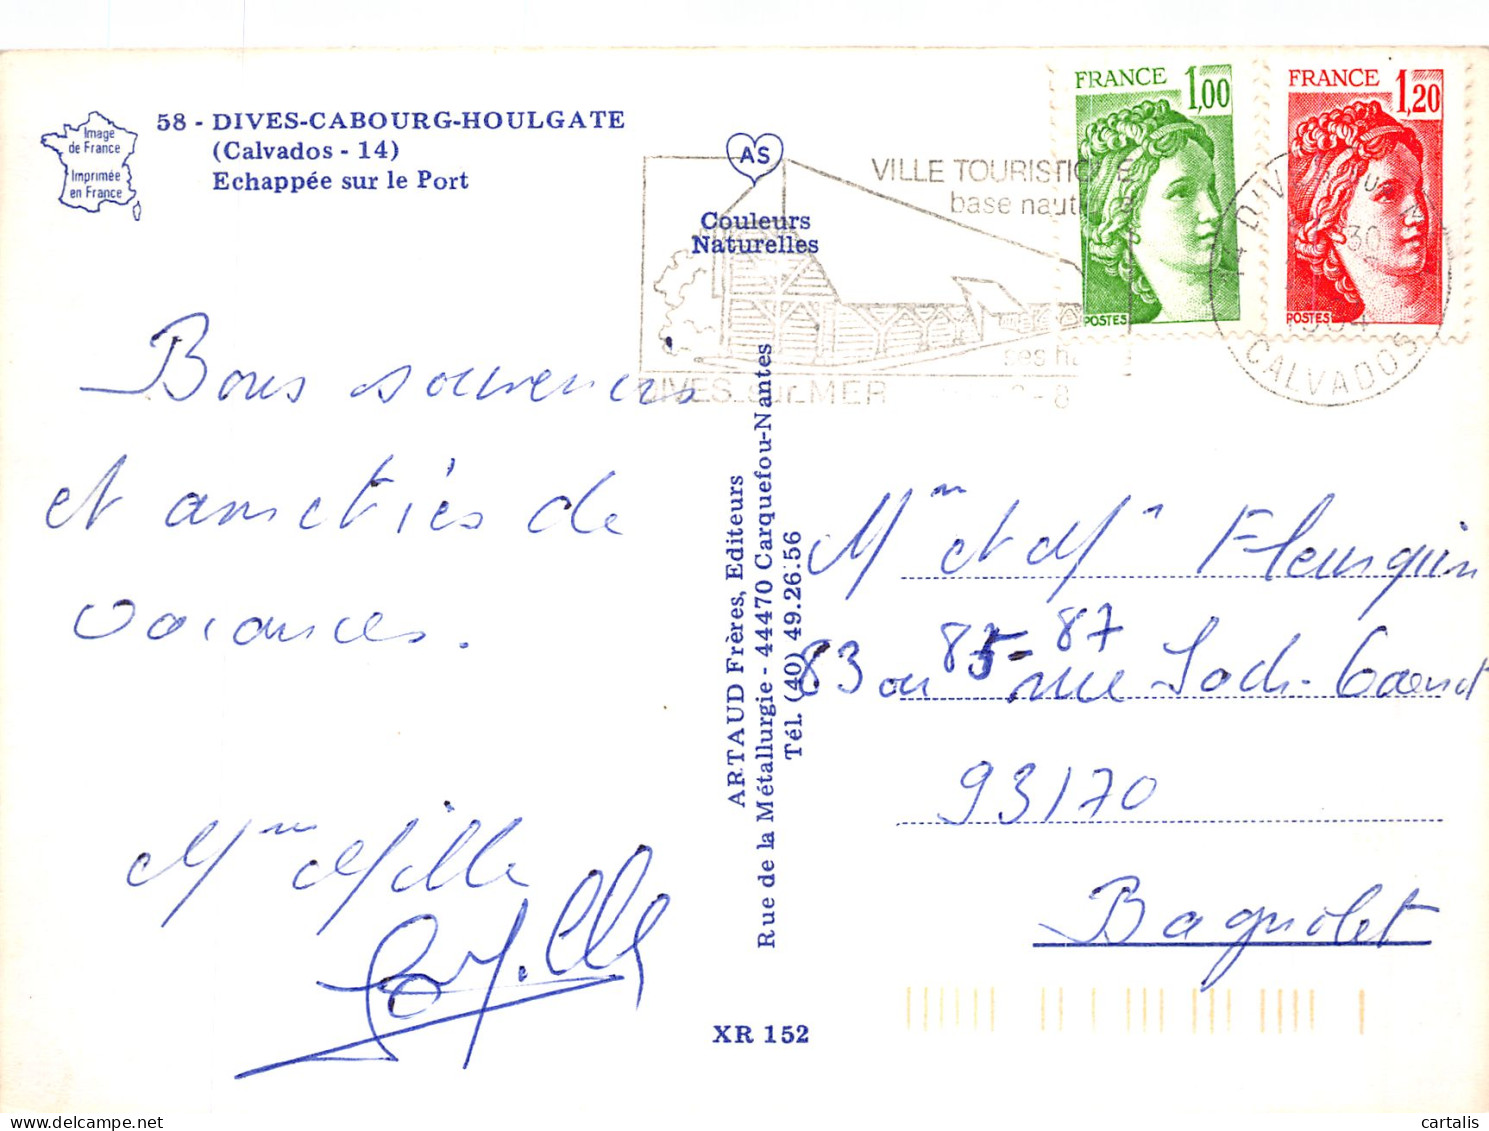 Image
de France
Imprimée
en France
58 - DIVES-CABOURG-HOULGATE
(Calvados - 14)
Echappée sur le Port
AS
Couleurs
Naturelles
VILLE TOURISTIQUE
base nautique
ses h
DIVES sur MER
FRANCE 1,00
POSTES
FRANCE 1,20
POSTES
14 DIVES
30
1984
CALVADOS
Bons souvenirs
et amitiés de
vacances.
Mme Mille
ARTAUD Frères, Editeurs
Rue de la Métallurgie - 44470 Carquefou-Nantes
Tél. (40) 49.26.56
Mme et Mr Fleurquin
83 ou 85 - 87 rue Sadi-Carnot
93170
Bagnolet
XR 152
cartalis